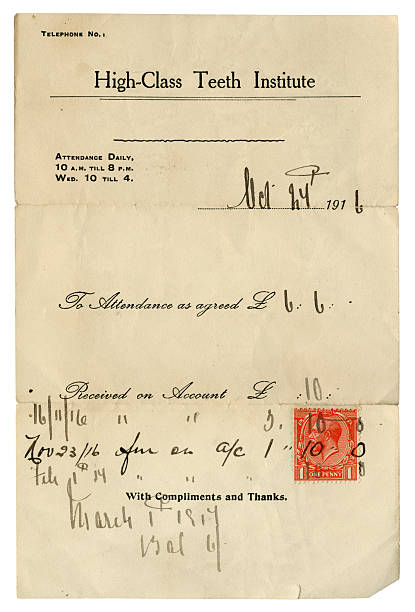 TELEPHONE NO. 1
High-Class Teeth Institute
ATTENDANCE DAILY,
10 A.M. TILL 8 P.M.
WED. 10 TILL 4.
Oct 24th 1916
To Attendance as agreed £ 6 : 6 :
Received on Account £ : 10 :
16/11/16 " " 3. 10 0
Nov 23/16 on a/c 1 " 10 0
Feb 1st 17 " " "
ONE PENNY
With Compliments and Thanks.
March 1st 1917
Bal 6/